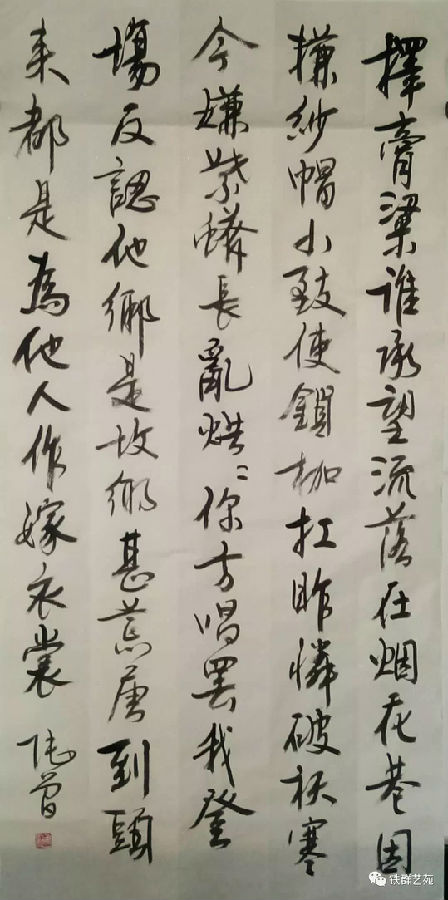 擇膏梁谁承望流落在烟花巷因
嫌紗帽小致使鎖枷扛昨憐破袄寒
今嫌紫蟒長亂烘〻你方唱罢我登
場反認他鄉是故鄉甚荒唐到頭
来都是為他人作嫁衣裳
铁群艺苑